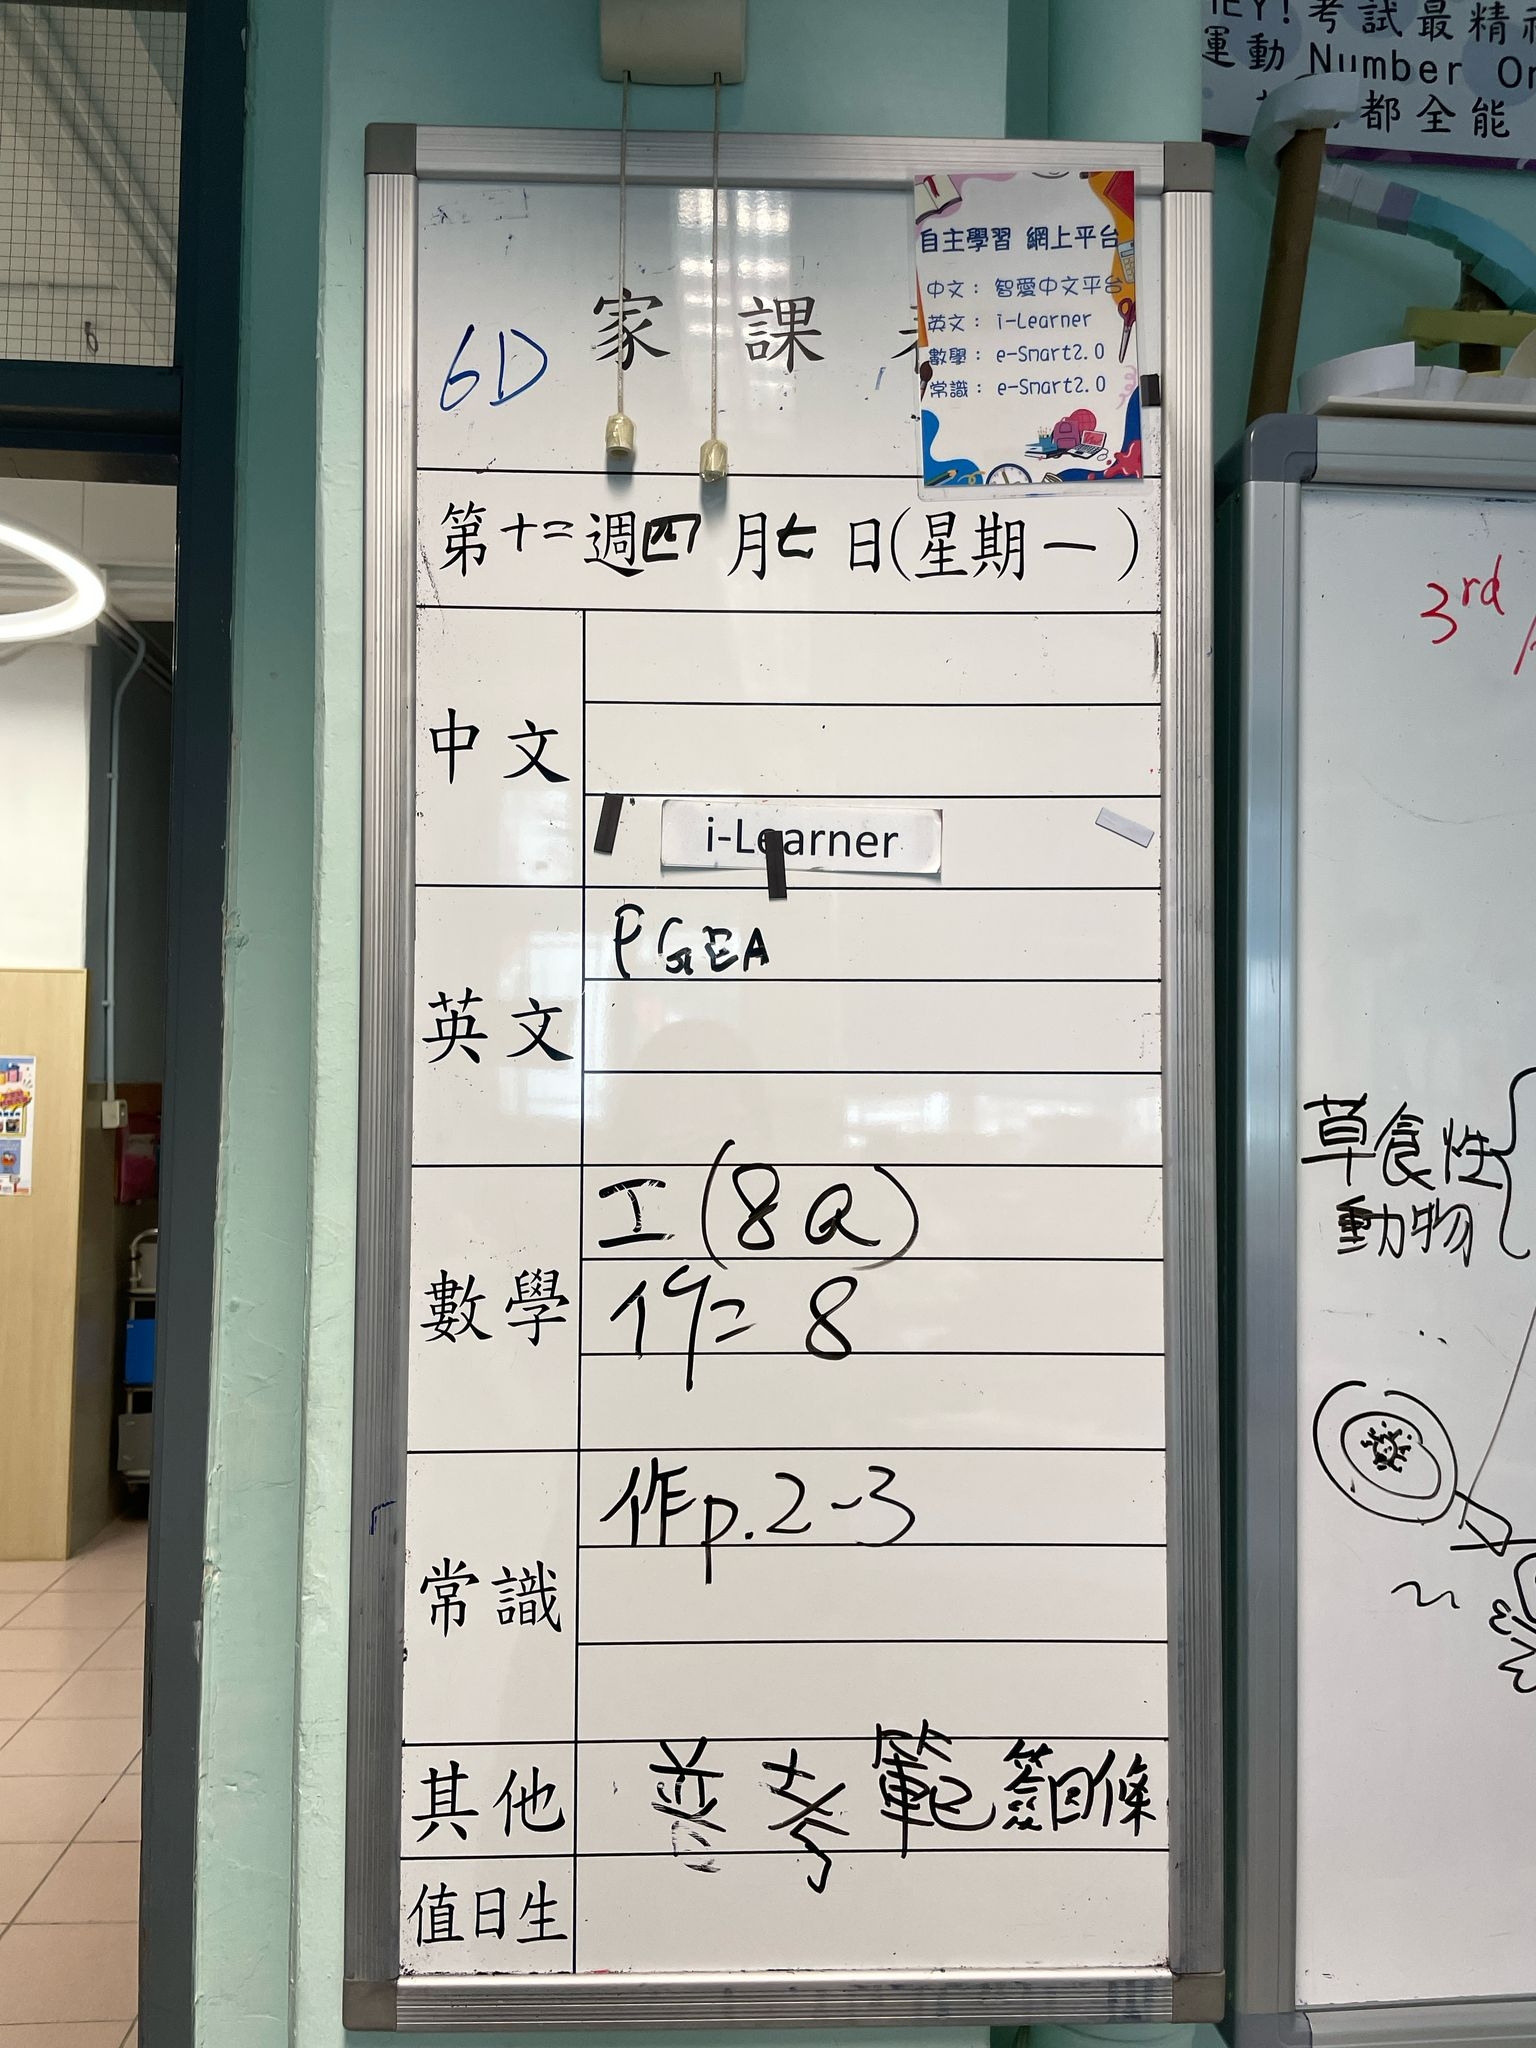 考試最精
運動 Number
都全能
自主學習 網上平台
中文： 智愛中文平台
英文： i-Learner
數學： e-Smart2.0
常識： e-Smart2.0
6D
家課
第十二週四月七日(星期一)
中文
i-Learner
英文
PGEA
數學
工(8Q)
作= 8
常識
作p.2-3
其他
普考範 簽回條
值日生
3rd
草食性
動物